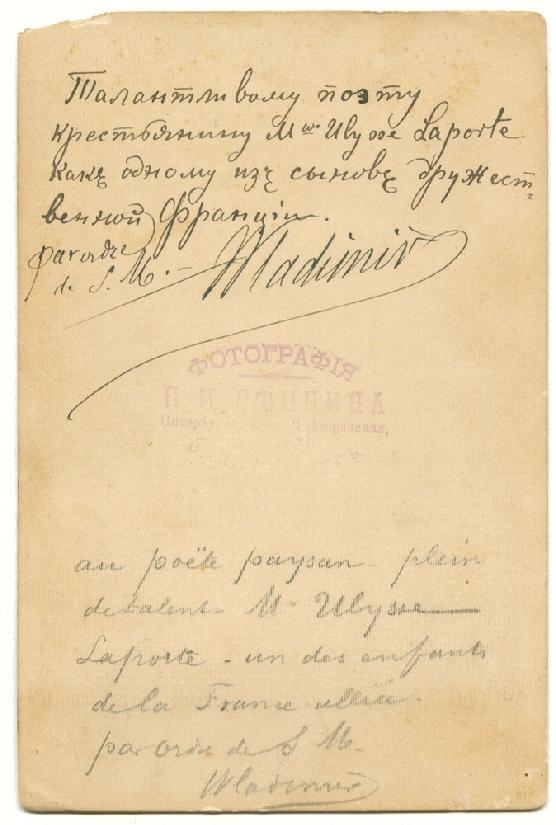 Талантливому поэту
крестьянину Mr Ulysse Laporte
какъ одному изъ сыновъ дружест-
венной Франціи.
par ordre
de S. M. - Wladimir
ФОТОГРАФІЯ
au poëte paysan plein
de talent Mr Ulysse
Laporte - un des enfants
de la France alliée.
par ordre de S M.
Wladimir